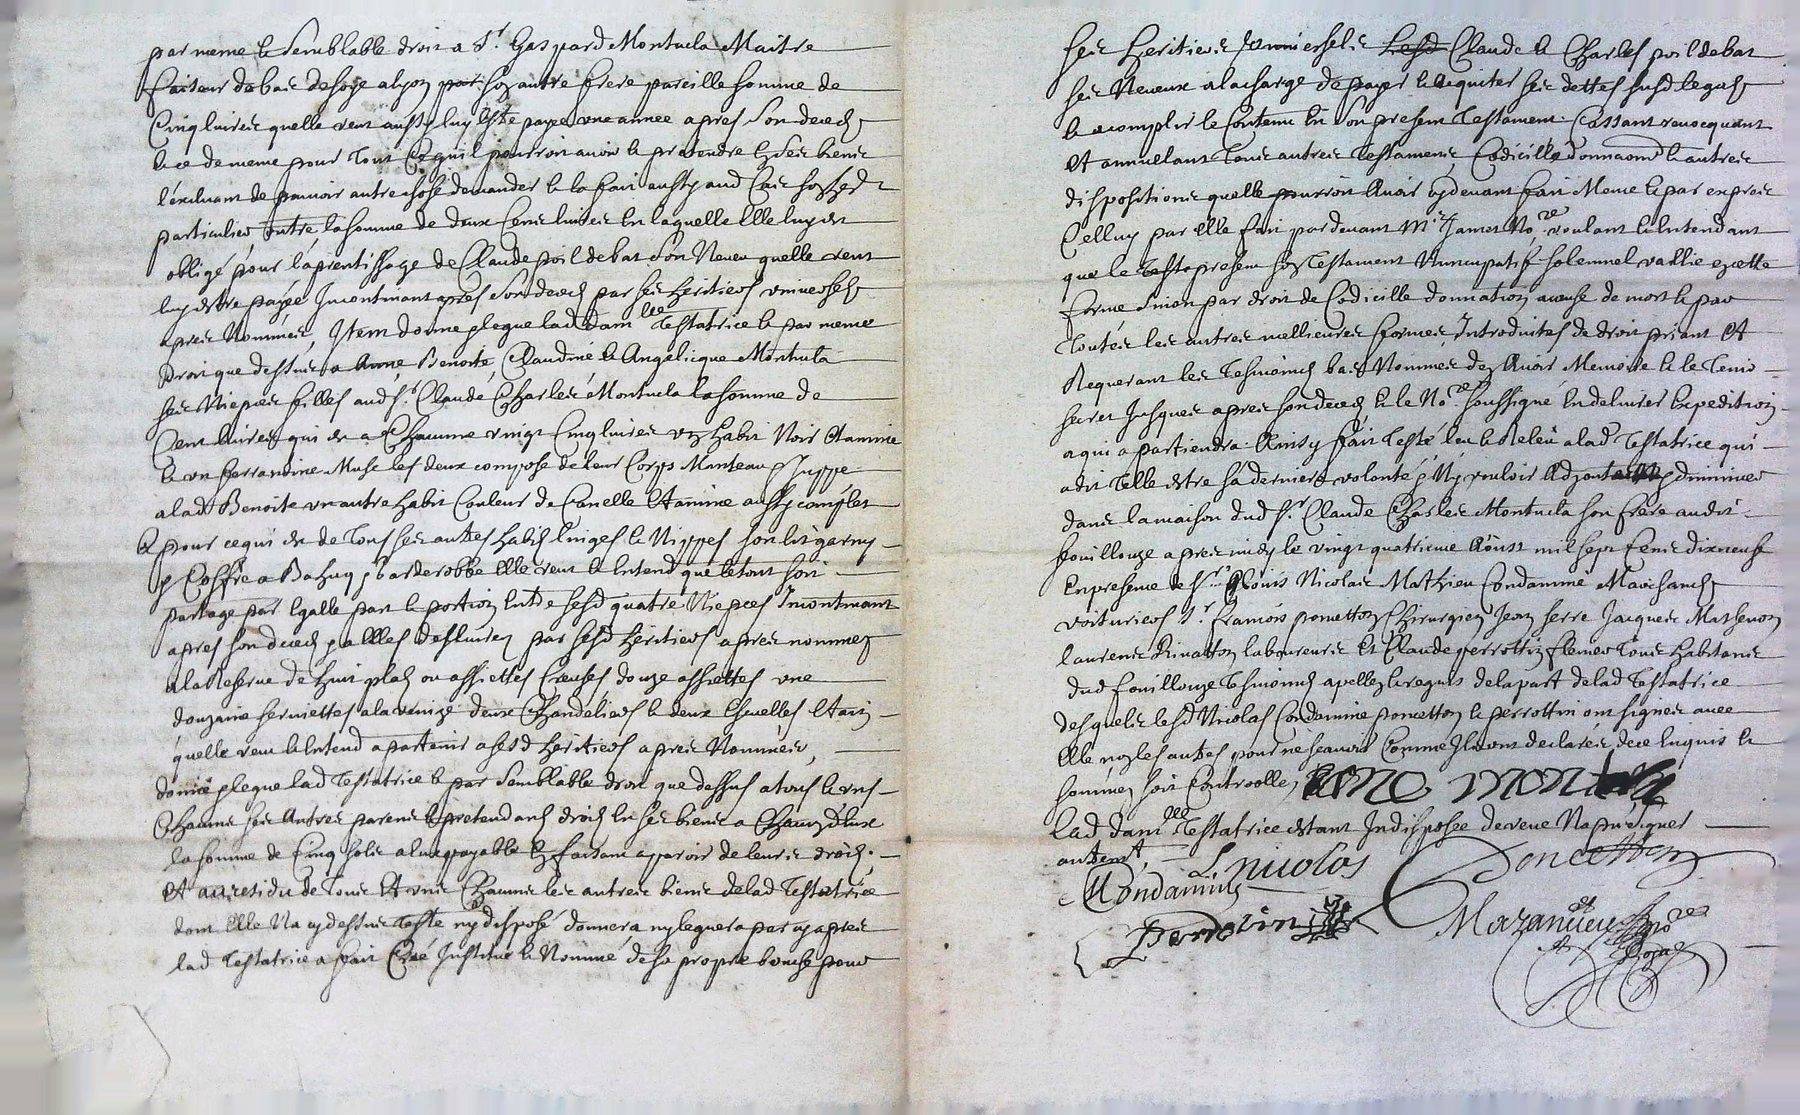 par meme et semblable droit a Sr. Gaspard Montucla Maitre
faiseur de bas de soye a Lyon son autre frere pareille somme de
Cinq livres quelle veut aussy luy estre payee une annee apres son deceds
et ce de meme pour tout ce quil pourroit avoir et pretendre en ses biens
l'excluant de pouvoir autre chose demander et la fait aussy aud cas son hed.
particulier outre la somme de deux Cens livres en laquelle elle luy est
obligé pour l'aprentissage de Claude poil debat son Neveu quelle veut
luy estre payée Incontinant apres son deceds par ses heritiers universels
apres Nommés, Item donne & legue lad damlle Testatrice et par meme
Droit que dessus a Benoite, Claudine et Angelicque Montucla
ses Niepces filles aud Sr. Claude Charles Montucla la somme de
Cent livres qui est a Chacune vingt Cinq livres un habit Noir Etamine
et un ferrandine Musc les deux compose de leur Corps Manteau & Juppe
a lad Benoite un autre habit Couleur de Canelle Etamine aussy complet
& pour ce qui est de tous ses autres habits linges et Nippes son lit garny
& Coffre a Bahuq garderobbe elle veut et entend que le tout soit
partage par Egalle part et portion Entre sesd quatre Niepces Incontinant
apres son deceds & a Elles deslivrez par sesd heritiers apres nommez
a la Reserve de huit plats ou assiettes Creuses douze assiettes une
douzaine serviettes a la venize deux Chandeliers et deux Escuelles Etain
quelle veut et Entend apartenir a sesd heritiers apres Nommés,
donne & legue lad Testatrice et par semblable droit que dessus a tous et uns
Chacuns ses Autres parens et pretendants droits en ses biens a Chacun d'eux
la somme de Cinq sols a lux payable En faisant aparoir de leurs droits.
Et au residu de tous Et uns Chacuns les autres biens de lad Testatrice
dont elle Na cy dessus teste ny disposé donnera ny leguera par cy apres
lad Testatrice a fait Créé Institué et Nommé de sa propre bouche pour
ses heritiers universels Lesd Claude et Charles poil debat
ses Neveux a la charge de payer et aquiter ses dettes susd legats
et acomplir le Contenu En son present Testament. Cassant revocquant
Et annullant tous autres Testamens Codicille donnaons et autres
dispositions quelle pourroit Avoir cy devant fait Meme et par exprès
Celluy par elle fait par devant Me Jamet Nore voulant et Entendant
que le Teste present son Testament Nuncupatif solemnel vallie en cette
forme sinon par droit de Codicille donnation a cause de mort et par
toutes les autres meillieures formes Introduites de droit priant Et
Requerant les Tesmoins bas Nommés d'en Avoir Memoire et le Tenir
secret Jusques apres son deceds et le Nore soussigné En delivrer Expedition
a qui apartiendra. Ainsy fait Testé leu et Releu a lad Testatrice qui
a dit Telle estre sa derniere volonté & Ny vouloir Adjouter Ny diminuer
dans la maison dud Sr. Claude Charles Montucla son frere aud
fouillouze apres midy le vingt quatrieme Aoust mil sept Cens dix neuf
En presence de Srs Louis Nicolas Mathieu Condamine Marchands
voituriers Sr. francois poncetton Chirurgien Jean serre Jacques Mathevon
laurens Rinatton laboureurs Et Claude perrottin flemer tous habitans
dud fouillouze Tesmoins apellez et requis de la part de lad Testatrice
desquels lesd Nicolas Condamine poncetton et perrottin ont signés avec
Elle non les autres pour ne scavoir Comme Ils ont declares de ce Enquis et
sommez soit Controolle,
lad damlle Testatrice estant Indisposee de veue Na pu signer
autremt,
L. nicolas
Poncetton
Condamine
Perrotin
Mazanieu Nore
Royal